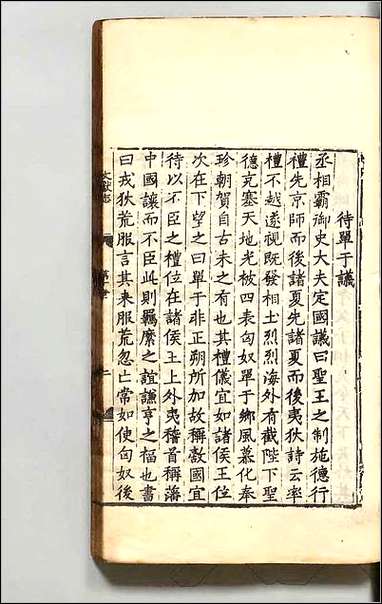 待單于議
丞相霸御史大夫定國議曰聖王之制施德行
禮先京師而後諸夏先諸夏而後夷狄詩云率
禮不越遂視既發相土烈烈海外有截陛下聖
德充塞天地光被四表匈奴單于鄉風慕化奉
珍朝賀自古未之有也其禮儀宜如諸侯王位
次在下望之曰單于非正朔所加故稱敵國宜
待以不臣之禮位在諸侯王上外夷稽首稱藩
中國讓而不臣此則羈縻之誼謙亨之福也書
曰戎狄荒服言其來服荒忽亡常如使匈奴後